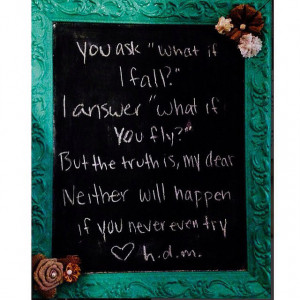 you ask "what if
I fall?"
I answer "what if
you fly?"
But the truth is, my dear
Neither will happen
if you never even try
♡ h.d.m.